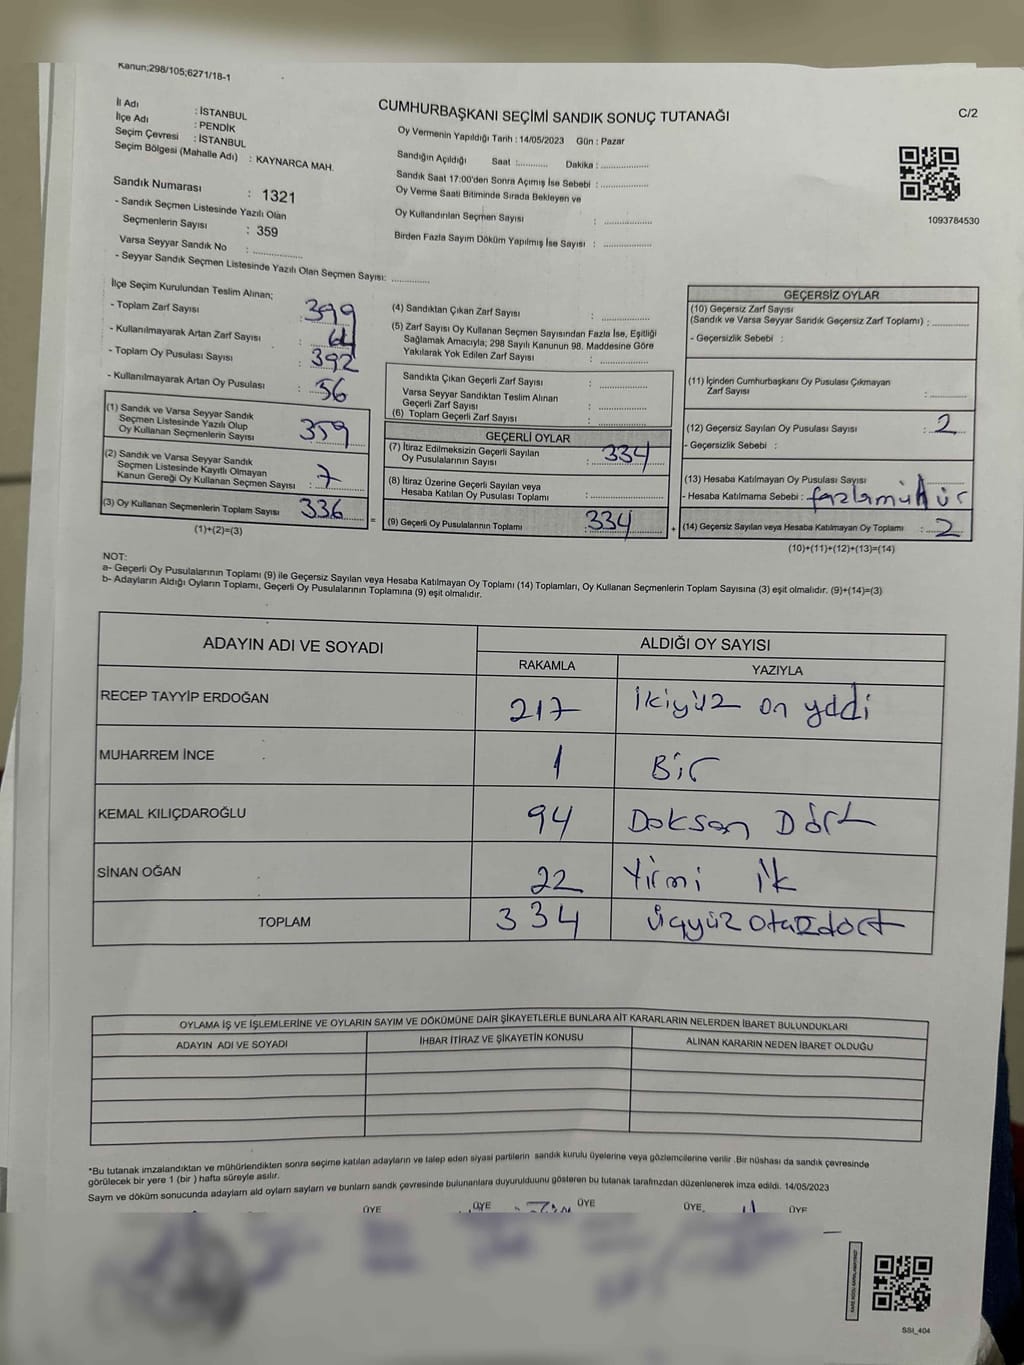 Kanun;298/105;6271/18-1
İl Adı : İSTANBUL
İlçe Adı : PENDİK
Seçim Çevresi : İSTANBUL
Seçim Bölgesi (Mahalle Adı) : KAYNARCA MAH.
CUMHURBAŞKANI SEÇİMİ SANDIK SONUÇ TUTANAĞI
C/2
Oy Vermenin Yapıldığı Tarih : 14/05/2023 Gün : Pazar
Sandığın Açıldığı Saat :........... Dakika : .................
Sandık Saat 17:00'den Sonra Açımış İse Sebebi : .................
Oy Verme Saati Bitiminde Sırada Bekleyen ve
Oy Kullandırılan Seçmen Sayısı : .................
Birden Fazla Sayım Döküm Yapılmış İse Sayısı : .................
1093784530
Sandık Numarası : 1321
- Sandık Seçmen Listesinde Yazılı Olan
Seçmenlerin Sayısı : 359
Varsa Seyyar Sandık No : .................
- Seyyar Sandık Seçmen Listesinde Yazılı Olan Seçmen Sayısı: .............
İlçe Seçim Kurulundan Teslim Alınan;
- Toplam Zarf Sayısı : 399
- Kullanılmayarak Artan Zarf Sayısı : 64
- Toplam Oy Pusulası Sayısı : 392
- Kullanılmayarak Artan Oy Pusulası : 56
(1) Sandık ve Varsa Seyyar Sandık
Seçmen Listesinde Yazılı Olup
Oy Kullanan Seçmenlerin Sayısı : 359
(2) Sandık ve Varsa Seyyar Sandık
Seçmen Listesinde Kayıtlı Olmayan
Kanun Gereği Oy Kullanan Seçmen Sayısı : 7
(3) Oy Kullanan Seçmenlerin Toplam Sayısı : 336
(1)+(2)=(3)
(4) Sandıktan Çıkan Zarf Sayısı : .................
(5) Zarf Sayısı Oy Kullanan Seçmen Sayısından Fazla İse, Eşitliği
Sağlamak Amacıyla; 298 Sayılı Kanunun 98. Maddesine Göre
Yakılarak Yok Edilen Zarf Sayısı : .................
Sandıkta Çıkan Geçerli Zarf Sayısı : .................
Varsa Seyyar Sandıktan Teslim Alınan
Geçerli Zarf Sayısı : .................
(6) Toplam Geçerli Zarf Sayısı : .................
GEÇERLİ OYLAR
(7) İtiraz Edilmeksizin Geçerli Sayılan
Oy Pusulalarının Sayısı : 334
(8) İtiraz Üzerine Geçerli Sayılan veya
Hesaba Katılan Oy Pusulası Toplamı : .................
= (9) Geçerli Oy Pusulalarının Toplamı : 334
GEÇERSİZ OYLAR
(10) Geçersiz Zarf Sayısı
(Sandık ve Varsa Seyyar Sandık Geçersiz Zarf Toplamı) : .............
- Geçersizlik Sebebi :
(11) İçinden Cumhurbaşkanı Oy Pusulası Çıkmayan
Zarf Sayısı : .............
(12) Geçersiz Sayılan Oy Pusulası Sayısı : 2
- Geçersizlik Sebebi :
(13) Hesaba Katılmayan Oy Pusulası Sayısı
- Hesaba Katılmama Sebebi : fazlamühür
+ (14) Geçersiz Sayılan veya Hesaba Katılmayan Oy Toplamı : 2
(10)+(11)+(12)+(13)=(14)
NOT:
a- Geçerli Oy Pusulalarının Toplamı (9) ile Geçersiz Sayılan veya Hesaba Katılmayan Oy Toplamı (14) Toplamları, Oy Kullanan Seçmenlerin Toplam Sayısına (3) eşit olmalıdır. (9)+(14)=(3)
b- Adayların Aldığı Oyların Toplamı, Geçerli Oy Pusulalarının Toplamına (9) eşit olmalıdır.
ADAYIN ADI VE SOYADI
ALDIĞI OY SAYISI
RAKAMLA YAZIYLA
RECEP TAYYİP ERDOĞAN 217 İkiyüz on yddi
MUHARREM İNCE 1 Bir
KEMAL KILIÇDAROĞLU 94 Doksan Dört
SİNAN OĞAN 22 Yirmi ik
TOPLAM 334 üçyüz otuzdört
OYLAMA İŞ VE İŞLEMLERİNE VE OYLARIN SAYIM VE DÖKÜMÜNE DAİR ŞİKAYETLERLE BUNLARA AİT KARARLARIN NELERDEN İBARET BULUNDUKLARI
ADAYIN ADI VE SOYADI İHBAR İTİRAZ VE ŞİKAYETİN KONUSU ALINAN KARARIN NEDEN İBARET OLDUĞU
*Bu tutanak imzalandıktan ve mühürlendikten sonra seçime katılan adayların ve talep eden siyasi partilerin sandık kurulu üyelerine veya gözlemcilerine verilir .Bir nüshası da sandık çevresinde
görülecek bir yere 1 (bir ) hafta süreyle asılır.
Sayım ve döküm sonucunda adayların ald oyların sayları ve bunların sandk çevresinde bulunanlara duyurulduunu gösteren bu tutanak tarafmzdan düzenlenerek imza edildi. 14/05/2023
ÜYE ÜYE ÜYE ÜYE ÜYE
SSI_404